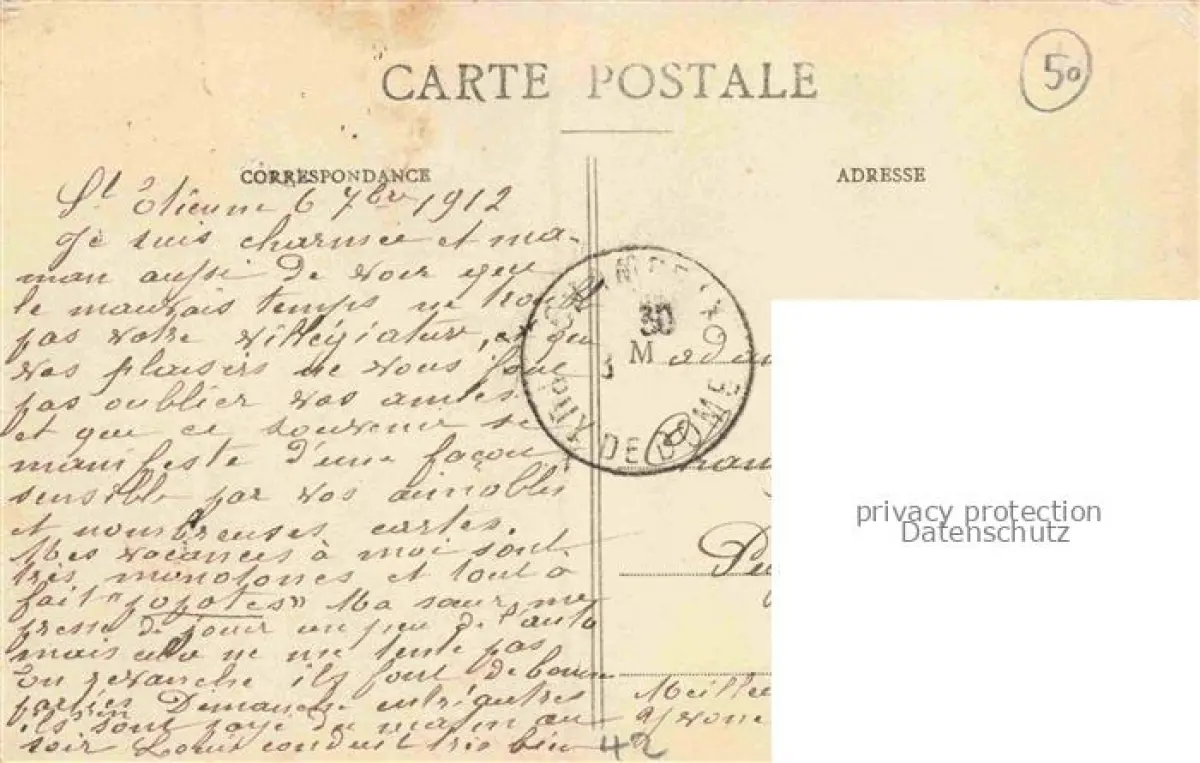 CARTE POSTALE
50
CORRESPONDANCE
ADRESSE
St Étienne 6 7bre 1912
Je suis charmée et ma-
man aussi de voir que
le mauvais temps ne trouble
pas votre villégiature, et que
vos plaisirs ne vous font
pas oublier vos amies
et que ce souvenir se
manifeste d'une façon
sensible par vos aimables
et nombreuses cartes.
Mes vacances à moi sont
très monotones et tout à
fait "popotes" Ma sœur me
presse de jouir un peu de l'auto
mais cela ne me tente pas
En revanche ils font de bonnes
parties Dimanche entr'autres
ils sont du matin au
soir Louis conduit très bien
30
M
DE DOME
Madam
Pu
Meille
Yvonne
42
privacy protection
Datenschutz